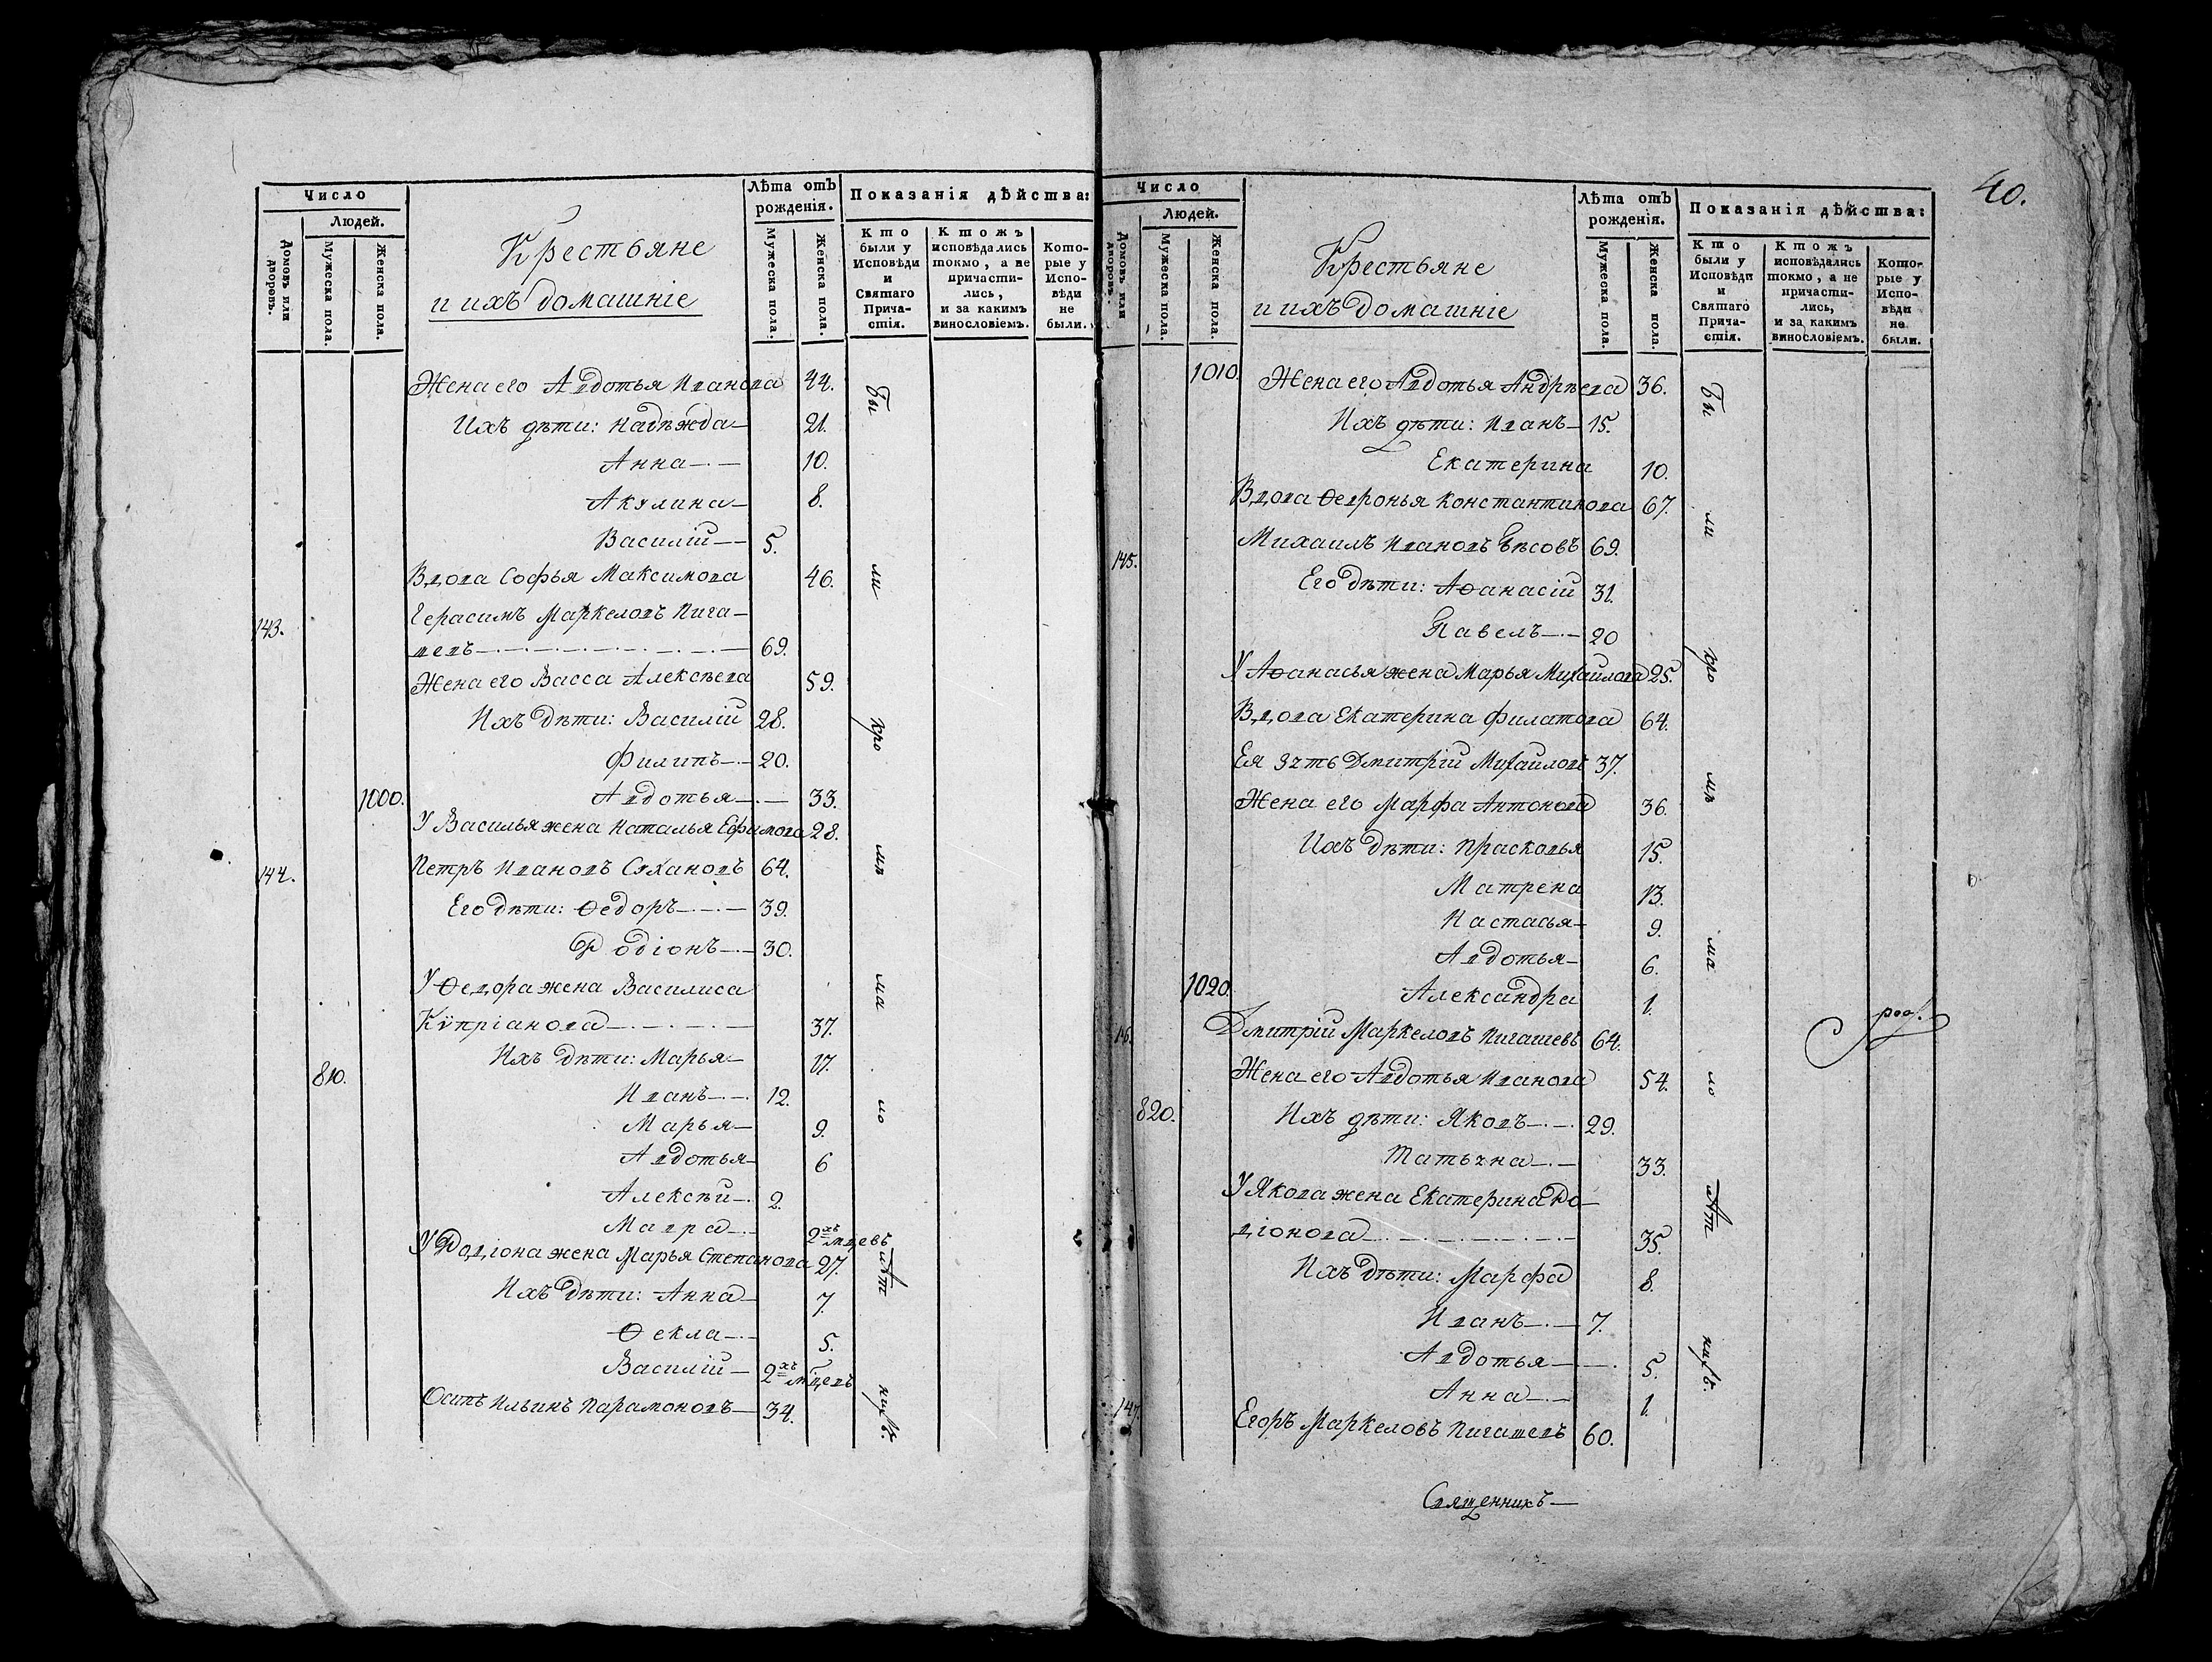 Число
Людей.
Домовъ или дворовъ.
Мужеска пола.
Женска пола.
Крестьяне
и ихъ домашніе
Лѣта отъ рожденія.
Мужеска пола.
Женска пола.
Показанія дѣйства:
Кто были у Исповѣди и Святаго Причастія.
Ктожъ исповѣдались токмо, а не причастились, и за какимъ винословіемъ.
Которые у Исповѣди не были.
Жена его Авдотья Иванова 44.
Ихъ дѣти: Надѣжда 21.
Анна 10.
Акулина 8.
Василій 5.
Вдова Софья Максимова 46.
143. Герасимъ Маркеловъ Пига-
шевъ 69.
Жена его Васса Алексѣева 59.
Ихъ дѣти: Василій 28.
Филипъ 20.
1000. Авдотья 33.
У Василья жена Наталья Ефимова 28.
144. Петръ Ивановъ Сухановъ 64.
Его дѣти: Ѳедоръ 39.
Родіонъ 30.
У Ѳедора жена Василиса
Кѵпріанова 37.
Ихъ дѣти: Марья 17.
810. Иванъ 12.
Марья 9.
Авдотья 6
Алексѣй 2.
Мавра 2хъ мцевъ
У Родіона жена Марья Степанова 27.
Ихъ дѣти: Анна 7.
Ѳекла 5.
Василій 2хъ мцевъ
Осипъ Ильинъ Парамоновъ 34.
Бы
ли
кро
мѣ
ма
ло
лѣт
нихъ.
40.
Число
Людей.
Домовъ или дворовъ.
Мужеска пола.
Женска пола.
Крестьяне
и ихъ домашніе
Лѣта отъ рожденія.
Мужеска пола.
Женска пола.
Показанія дѣйства:
Кто были у Исповѣди и Святаго Причастія.
Ктожъ исповѣдались токмо, а не причастились, и за какимъ винословіемъ.
Которые у Исповѣди не были.
1010. Жена его Авдотья Андрѣева 36.
Ихъ дѣти: Иванъ 15.
Екатерина 10.
Вдова Ѳевронья Константинова 67.
145. Михаилъ Ивановъ Бѣсовъ 69.
Его дѣти: Аѳанасій 31.
Павелъ 20
У Аѳанасья жена Марья Михайлова 25.
Вдова Екатерина Филатова 64.
Ея зять Дмитрій Михайловъ 37.
Жена его Марфа Антонова 36.
Ихъ дѣти: Прасковья 15.
Матрена 13.
Настасья 9.
Авдотья 6.
1020. Александра 1.
146. Дмитрій Маркеловъ Пигашевъ 64.
Жена его Авдотья Иванова 54.
820. Ихъ дѣти: Яковъ 29.
Татьяна 33.
У Якова жена Екатерина Ро-
діонова 35.
Ихъ дѣти: Марфа 8.
Иванъ 7.
Авдотья 5.
Анна 1.
147. Егоръ Маркеловъ Пигашевъ 60.
Бы
ли
кро
мѣ
ма
ло
лѣт
нихъ.
Священникъ